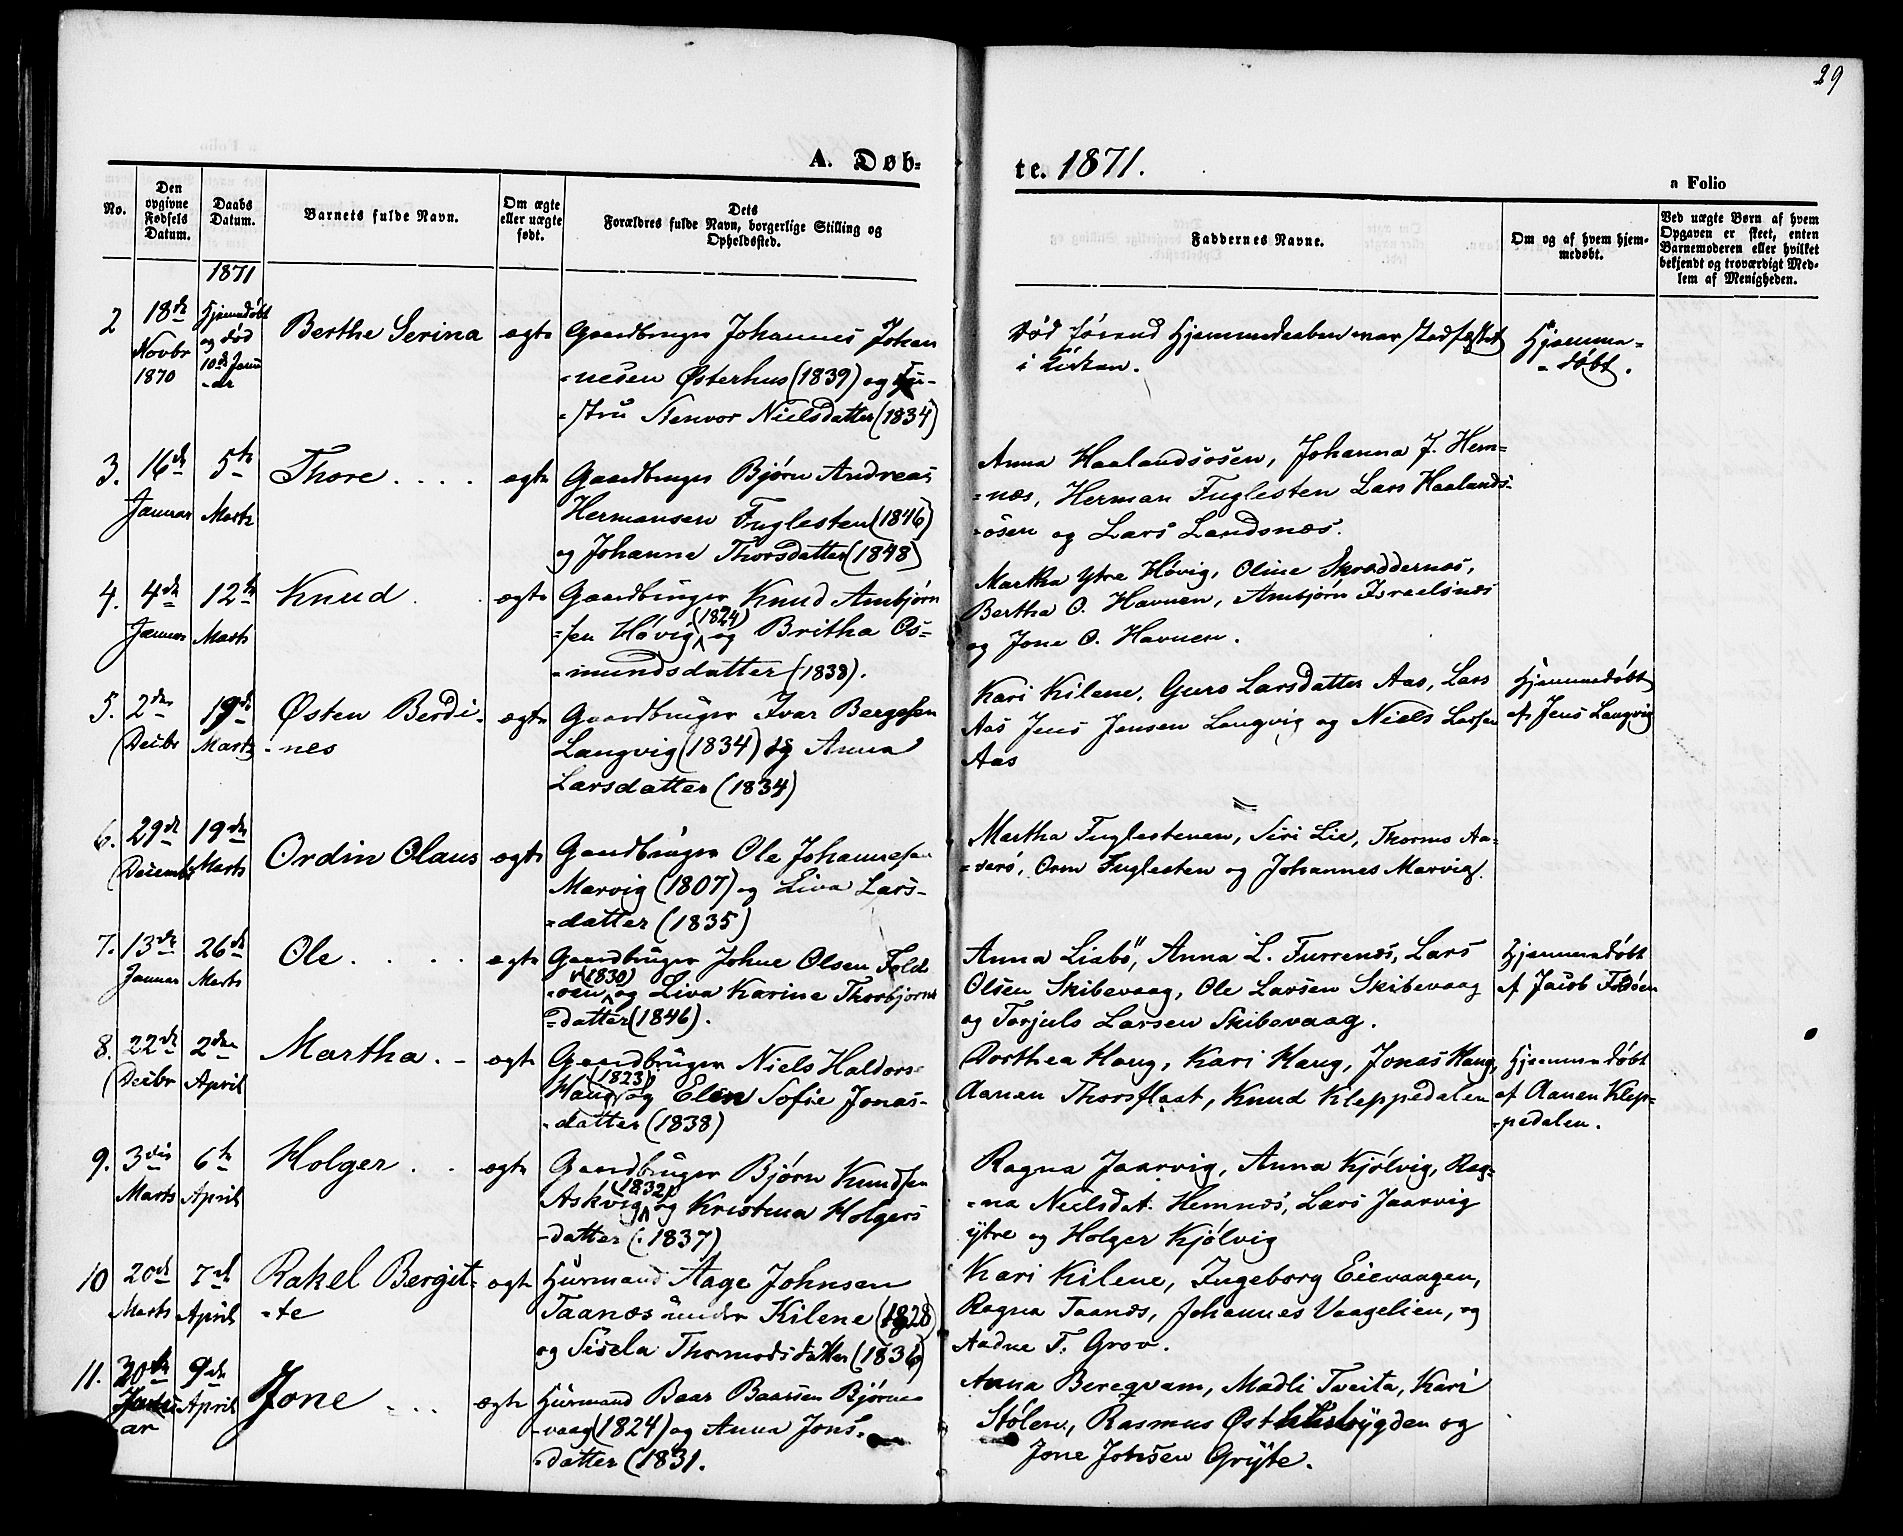 29
A. Døb-
te. 1871.
a Folio
No.
Den opgivne Fødsels Datum.
Daabs Datum.
Barnets fulde Navn.
Om ægte eller uægte født.
Dets Forældres fulde Navn, borgerlige Stilling og Opholdssted.
Faddernes Navne.
Om og af hvem hjemmedøbt.
Ved uægte Børn af hvem Opgaven er skeet, enten Barnemoderen eller hvilket bekjendt og troværdigt Medlem af Menigheden.
1871
2 18de Novbr 1870
Hjemmedøbt og død 10de Janu-ar
Berthe Serina
ægte
Gaardbruger Johannes Johan
=nesen Østerhus (1839) og Hu-
-stru Stenvor Nielsdatter (1834)
Død førend Hjemmedaaben var stadfæstet
i Kirken.
Hjemme=
=døbt.
3. 16de Januar
5te Marts
Thore . . . .
ægte
Gaardbruger Bjørn Andreas
Hermansen Fuglesten (1846)
og Johanne Thorsdatter (1848)
Anna Haalandsosen, Johanna J. Hem=
=næs, Herman Fuglesten Lars Haalands-
-osen og Lars Landsnæs.
4. 4de Januar
12te Marts
Knud . .
ægte
Gaardbruger Knud Ambjørn
=sen Høvig (1824) og Britha Os=
=mundsdatter (1838).
Martha Ytre Høvig, Oline Skræddernæs,
Bertha O. Havnen, Ambjørn Israelsnæs
og Jone O. Havnen.
5. 2den Decbr
19de Marts
Østen Berdi-
-nes
ægte
Gaardbruger Ivar Bergesen
Langvig (1834) og Anna
Larsdatter (1834)
Kari Kilene, Guro Larsdatter Aas, Lars
Aas Jens Jensen Langvig og Niels Larsen
Aas
Hjemmedøbt
af Jens Langvig
6. 29de Decembr
19de Marts
Ordin Olaus
ægte
Gaardbruger Ole Johannesen
Marvig (1807) og Liva Lars-
=datter (1835)
Martha Fuglestenen, Siri Lie, Thormo Aa=
=derö, Orm Fuglesten og Johannes Marvig.
7. 13de Januar
26de Marts
Ole . . . .
ægte
Gaardbruger Johne Olsen Fold
=øen (1830) og Liva Karine Thorbjørns
=datter (1846).
Anna Liabö, Anna L. Furrenæs, Lars
Olsen Skibevaag, Ole Larsen Skibevaag
og Torjuls Larsen Skibevaag.
Hjemmedøbt
af Jacob Foldøen
8. 22de Decbr
2den April
Martha . -
ægte
Gaardbruger Niels Haldors
Haug (1823) og Elen Sofie Jonas-
-datter (1838)
Dorthea Haug, Kari Haug, Jonas Haug,
Aanen Thorsflaat, Knud Kleppedalen
Hjemmedøbt
af Aanen Klep=
=pedalen.
9. 3die Marts
6te April
Holger . .
ægte
Gaardbruger Bjørn Knudsen
Askvig (1832) og Kristina Holgers
-datter (1837)
Ragna Jaarvig, Anna Kjølvig, Rag=
=na Nielsdat. Hemnæs, Lars Jaarvig
ytre og Holger Kjølvig
10 20de Marts
7de April
Rakel Bergit=
-te
ægte
Husmand Aage Johnsen
Taanæs under Kilene (1828)
og Sisela Thormodsdatter (1836)
Kari Kilene, Ingeborg Eievaagen,
Ragna Taanæs, Johannes Vaagelien, og
Aadne T. Grov.
11. 30te Janu-ar
9de April
Jone . . .
ægte
Husmand Baar Baarsen Bjørne
-vaag (1824) og Anna Jons-
-datter (1831.
Anna Beregvam, Madli Tveita, Kari
Stølen, Rasmus Østhusbygden og
Jone Johsen Gryte.